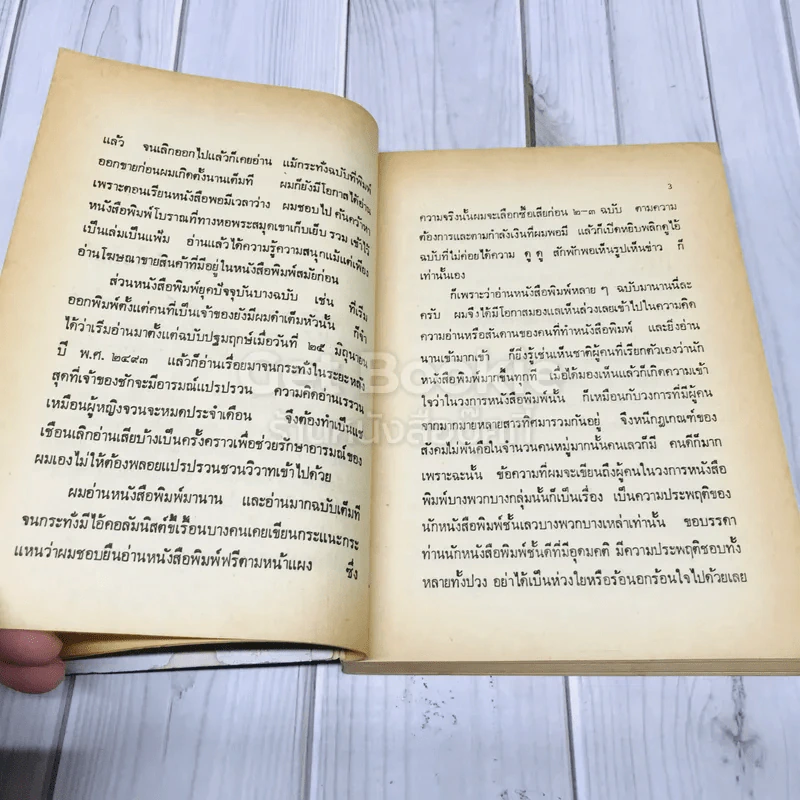 แล้ว จนเลิกออกไปแล้วก็เคยอ่าน แม้กระทั่งฉบับที่พิมพ์
ออกขายก่อนผมเกิดตั้งนานเต็มที ผมก็ยังมีโอกาสได้อ่าน
เพราะตอนเรียนหนังสือพอมีเวลาว่าง ผมชอบไป ค้นคว้าหา
หนังสือพิมพ์โบราณที่ทางหอพระสมุดเขาเก็บเย็บ รวม เข้าไว้
เป็นเล่มเป็นแฟ้ม อ่านแล้วได้ความรู้ความสนุกแม้แต่เพียง
อ่านโฆษณาขายสินค้าที่มีอยู่ในหนังสือพิมพ์สมัยก่อน
ส่วนหนังสือพิมพ์ยุคปัจจุบันบางฉบับ เช่น ที่เริ่ม
ออกพิมพ์ตั้งแต่คนที่เป็นเจ้าของยังมีผมดำเต็มหัวนั้น ก็จำ
ได้ว่าเริ่มอ่านมาตั้งแต่ฉบับปฐมฤกษ์เมื่อวันที่ ๒๕ มิถุนายน
ปี พ.ศ. ๒๔๙๓ แล้วก็อ่านเรื่อยมาจนกระทั่งในระยะหลัง
สุดที่เจ้าของชักจะมีอารมณ์แปรปรวน ความคิดอ่านเรรวน
เหมือนผู้หญิงจวนจะหมดประจำเดือน จึงต้องทำเป็นแช
เชือนเลิกอ่านเสียบ้างเป็นครั้งคราวเพื่อช่วยรักษาอารมณ์ของ
ผมเองไม่ให้ต้องพลอยแปรปรวนชวนวิวาทเข้าไปด้วย
ผมอ่านหนังสือพิมพ์มานาน และอ่านมากฉบับเต็มที
จนกระทั่งมีไอ้คอลัมนิสต์ขี้เรื้อนบางคนเคยเขียนกระแนะกระ
แหนว่าผมชอบยืนอ่านหนังสือพิมพ์ฟรีตามหน้าแผง ซึ่ง
3
ความจริงนั้นผมจะเลือกซื้อเสียก่อน ๒–๓ ฉบับ ตามความ
ต้องการและตามกำลังเงินที่ผมพอมี แล้วก็เปิดหยิบพลิกดูไอ้
ฉบับที่ไม่ค่อยได้ความ ดู ดู สักพักพอเห็นรูปเห็นข่าว ก็
เท่านั้นเอง
ก็เพราะว่าอ่านหนังสือพิมพ์หลาย ๆ ฉบับมานานนี่ละ
ครับ ผมจึงได้มีโอกาสมองแลเห็นล่วงเลยเข้าไปในความคิด
ความอ่านหรือสันดานของคนที่ทำหนังสือพิมพ์ และยิ่งอ่าน
นานเข้ามากเข้า ก็ยิ่งรู้เช่นเห็นชาติผู้คนที่เรียกตัวเองว่านัก
หนังสือพิมพ์มากขึ้นทุกที เมื่อได้มองเห็นแล้วก็เกิดความเข้า
ใจว่าในวงการหนังสือพิมพ์นั้น ก็เหมือนกับวงการที่มีผู้คน
จากมากมายหลายสาวทิศมารวมกันอยู่ จึงหนีกฎเกณฑ์ของ
สังคมไม่พ้นคือในจำนวนคนหมู่มากนั้นคนเลวก็มี คนดีก็มาก
เพราะฉะนั้น ข้อความที่ผมจะเขียนถึงผู้คนในวงการหนังสือ
พิมพ์บางพวกบางกลุ่มนั้นก็เป็นเรื่อง เป็นความประพฤติของ
นักหนังสือพิมพ์ชั้นเลวบางพวกบางเหล่าเท่านั้น ขอบรรดา
ท่านนักหนังสือพิมพ์ชั้นดีที่มีอุดมคติ มีความประพฤติชอบทั้ง
หลายทั้งปวง อย่าได้เป็นห่วงใยหรือร้อนอกร้อนใจไปด้วยเลย